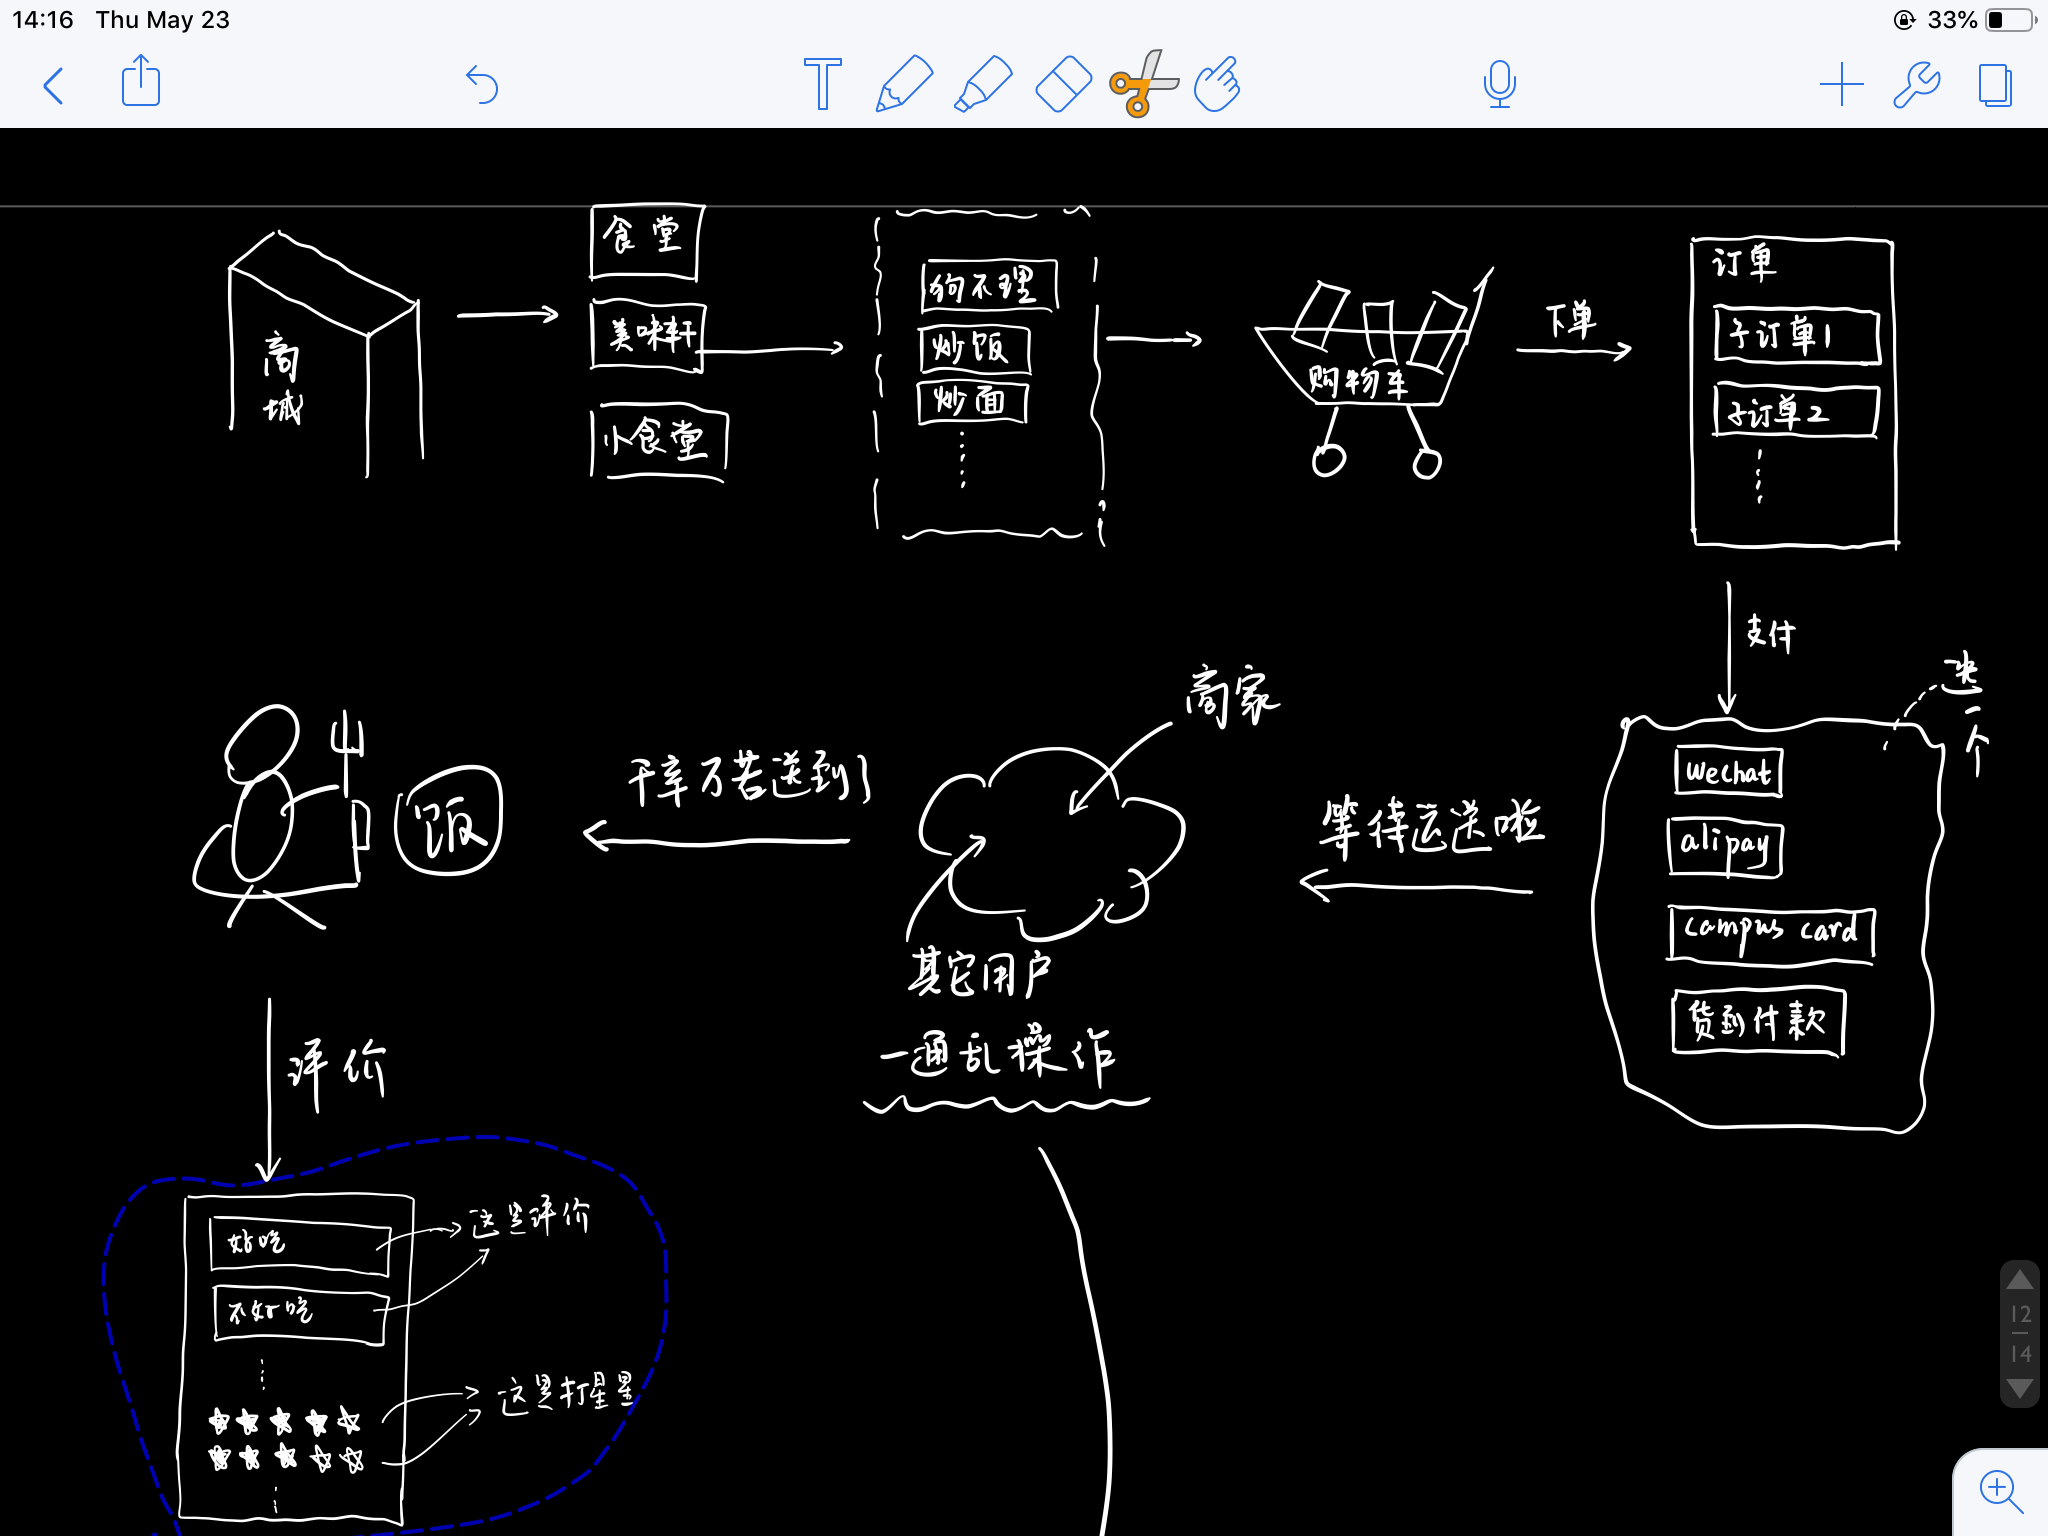 14:16 Thu May 23
33%
T
食堂
商城
美味轩
小食堂
狗不理
炒饭
炒面
购物车
下单
订单
子订单1
子订单2
支付
选一个
wechat
alipay
campus card
货到付款
等待运送啦
商家
其它用户
一通乱操作
千辛万苦送到了
饭
评价
好吃
不好吃
这是评价
这是打星星
12
14